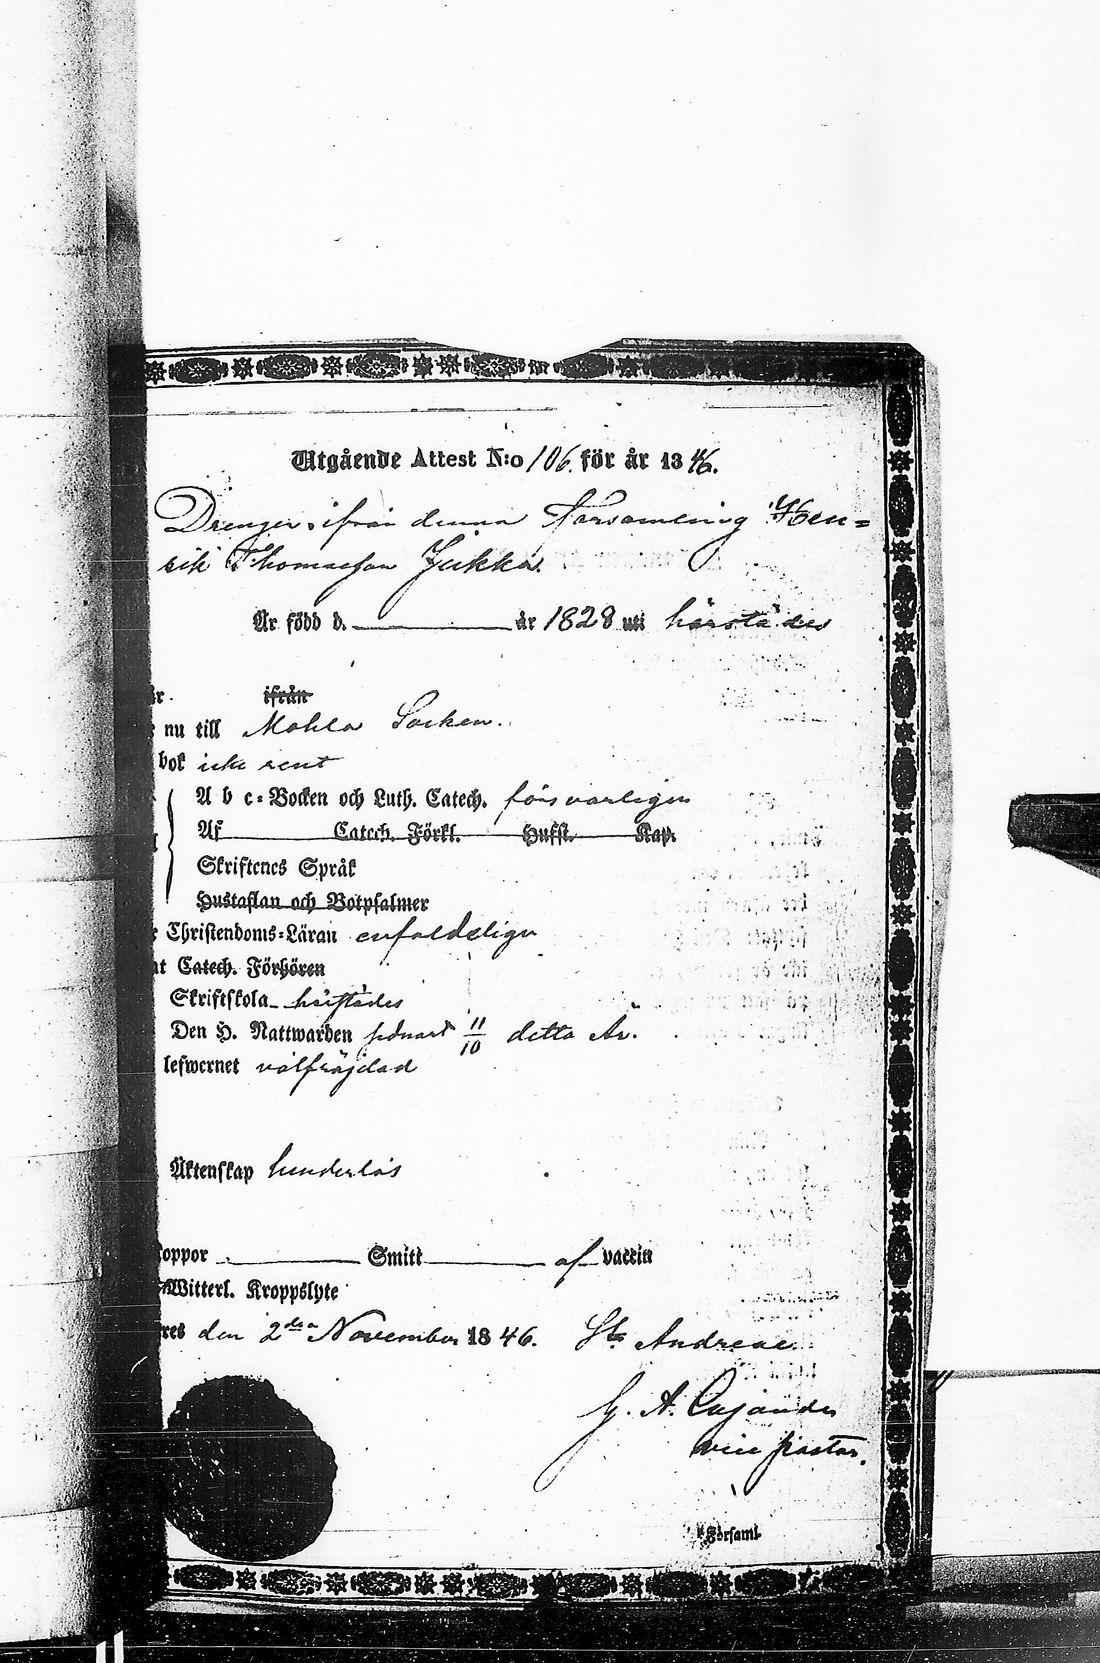 Utgående Attest N:o 106. för år 1846.
Drengen ifrån denna Församling Hen=
rik Thomasson Jukka.
Är född d. år 1828 uti härstädes
ifrån
nu till Mohla Socken.
bok icke rent
A b c=Bocken och Luth. Catech. försvarligen
Af Catech. Förkl. Hufst. Kap.
Skriftenes Språk
Hustaflan och Botpsalmer
Christendoms=Läran enfaldeligen
Catech. Förhören
Skriftskola härstädes
Den H. Nattwarden senast 11/10 detta År.
lefwernet välfräjdad
Äktenskap hinderlös
koppor Smitt af vaccin
Witterl. Kroppslyte
den 2dra November 1846. St. Andreae
G. A. Cajander
vice pastor.
Församl.